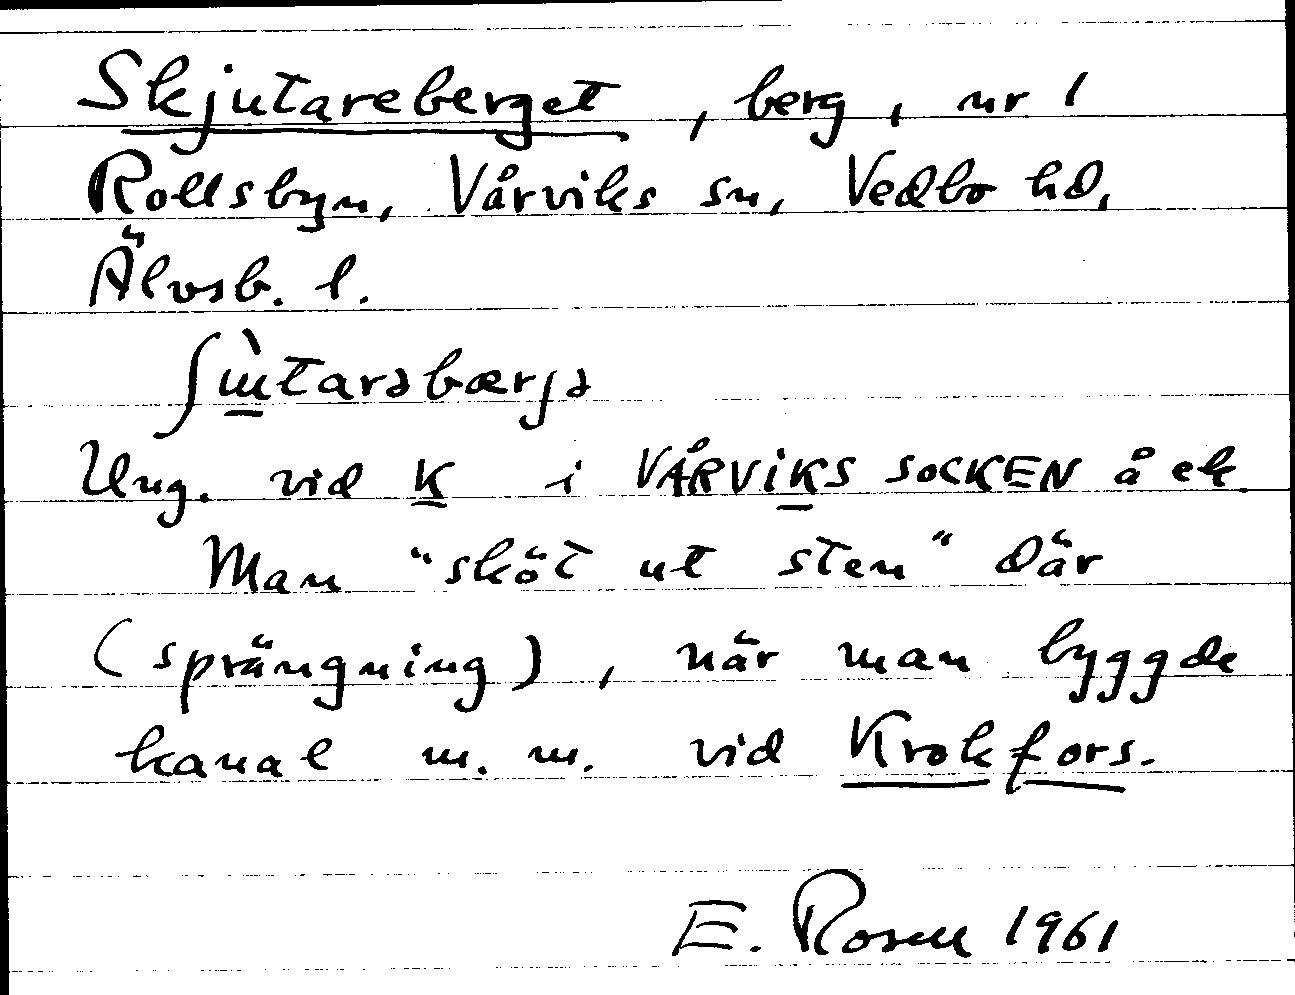 Skjutareberget, berg, nr 1
Rollsbyn, Vårviks sn, Vedbo hd,
Älvsb. l.
Ung. vid K i VÅRVIKS SOCKEN å ek.
Man "sköt ut sten" där
(sprängning), när man byggde
kanal m. m. vid Krokfors.
E. Rosell 1961